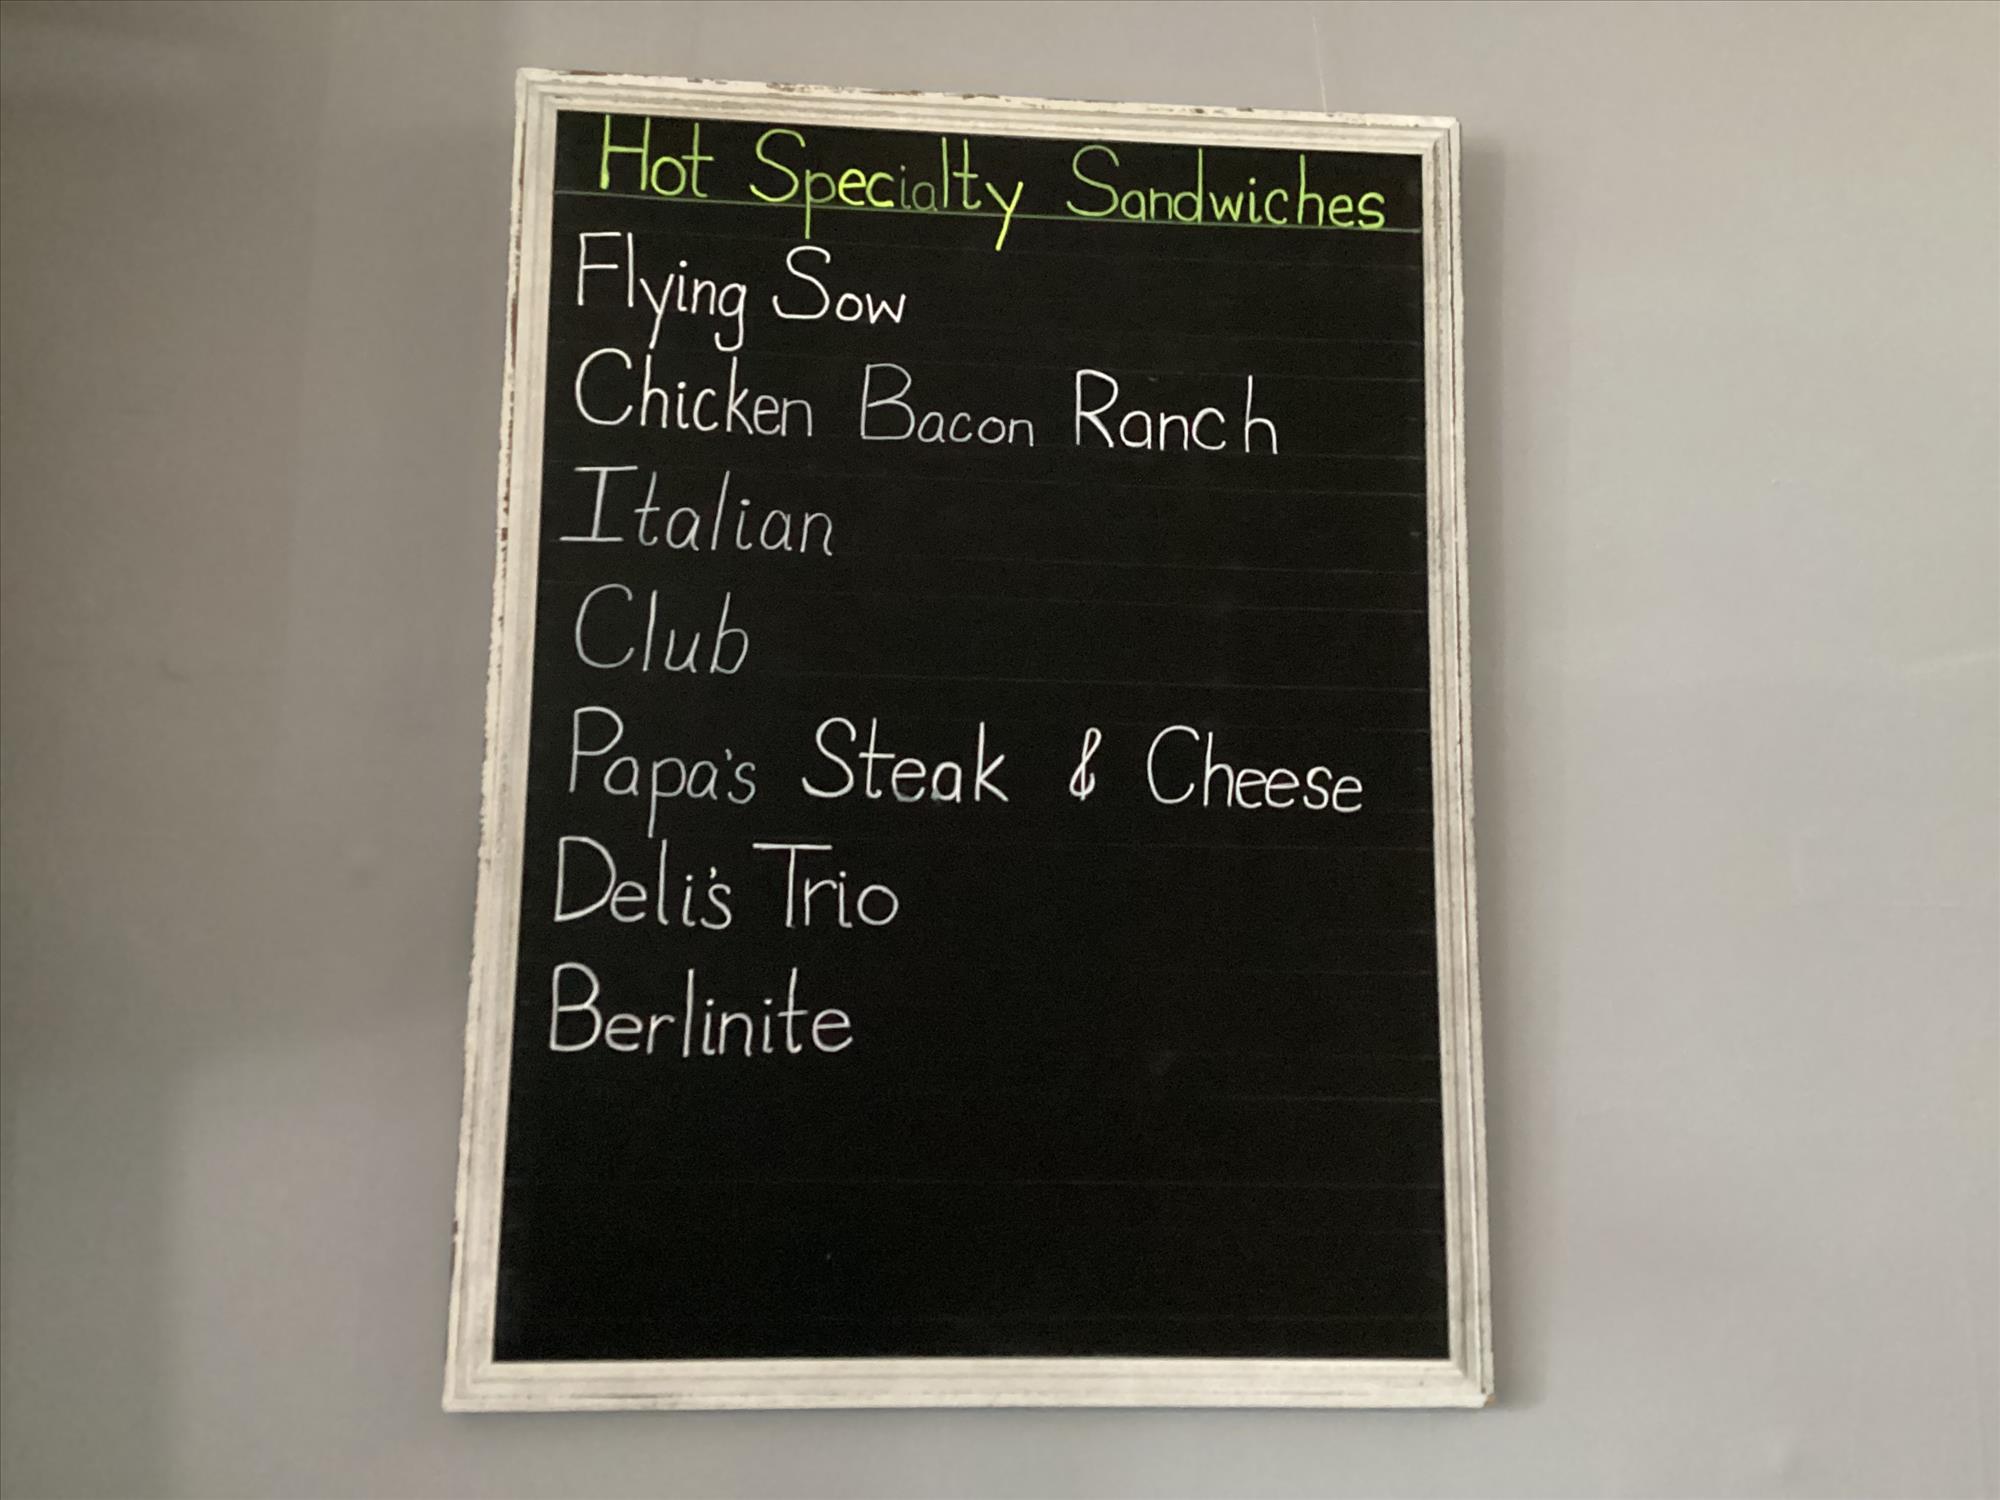 Hot Specialty Sandwiches
Flying Sow
Chicken Bacon Ranch
Italian
Club
Papa's Steak & Cheese
Deli's Trio
Berlinite